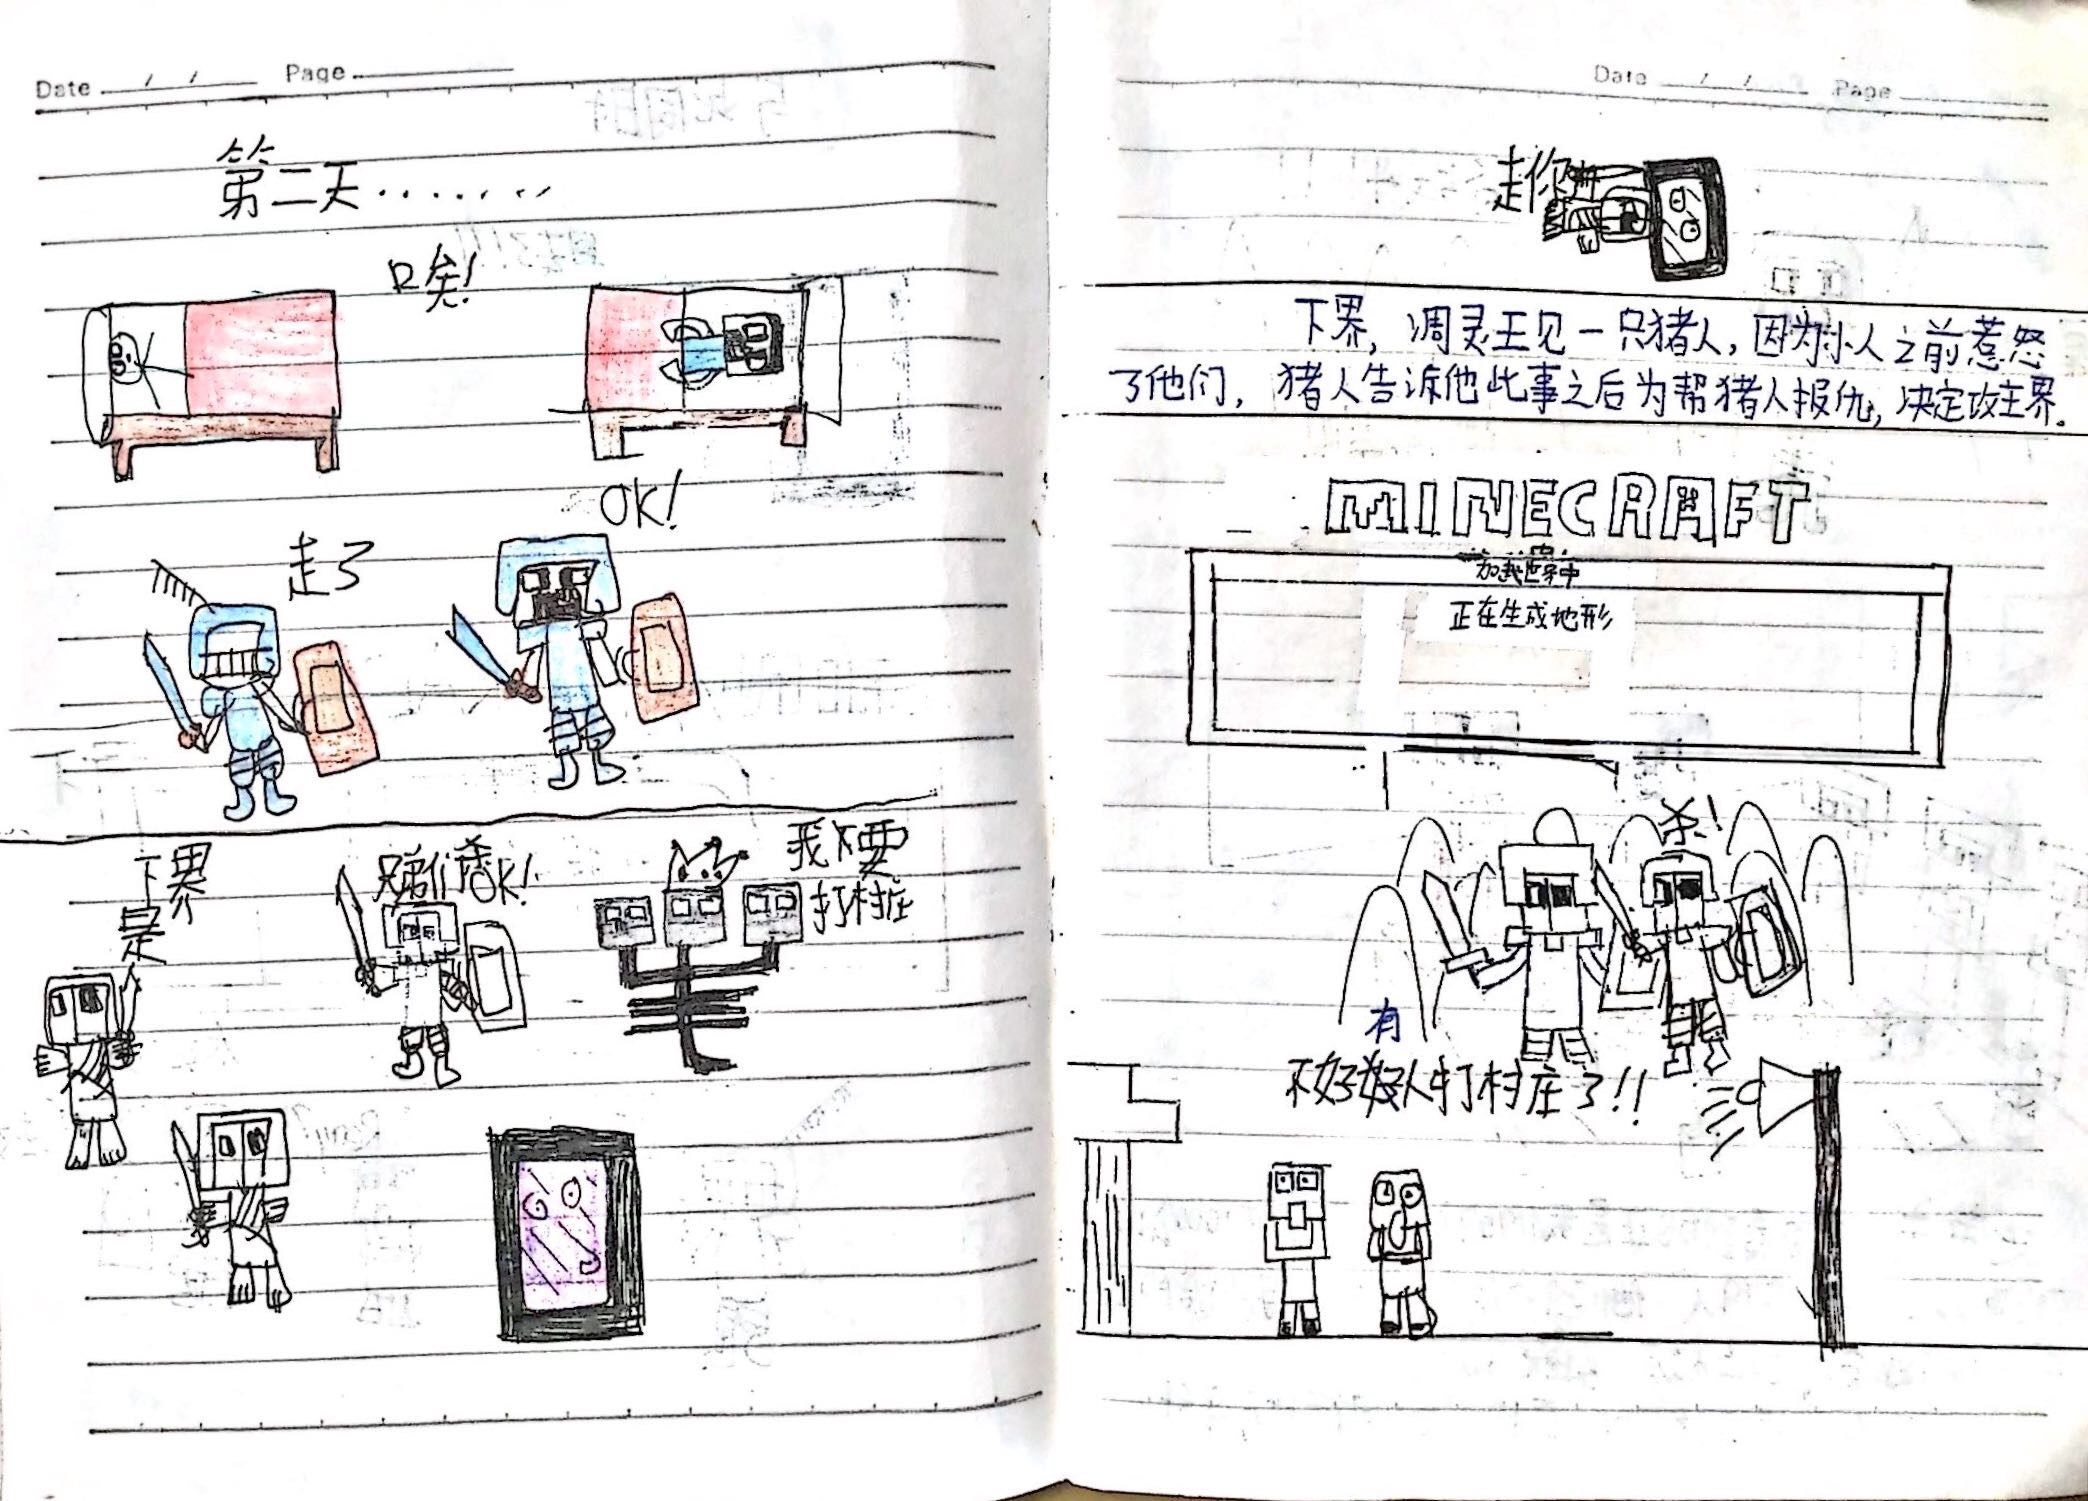 Date / / Page
第二天.......
唉!
OK!
走了
下界
是
兄弟们 OK!
我不要
打村庄
Date / / Page
走你
下界，凋灵王见一只猪人，因为小人之前惹怒
了他们，猪人告诉他此事之后为帮猪人报仇，决定攻主界。
MINECRAFT
加载世界中
正在生成地形
杀!
有
不好好人打村庄了!!